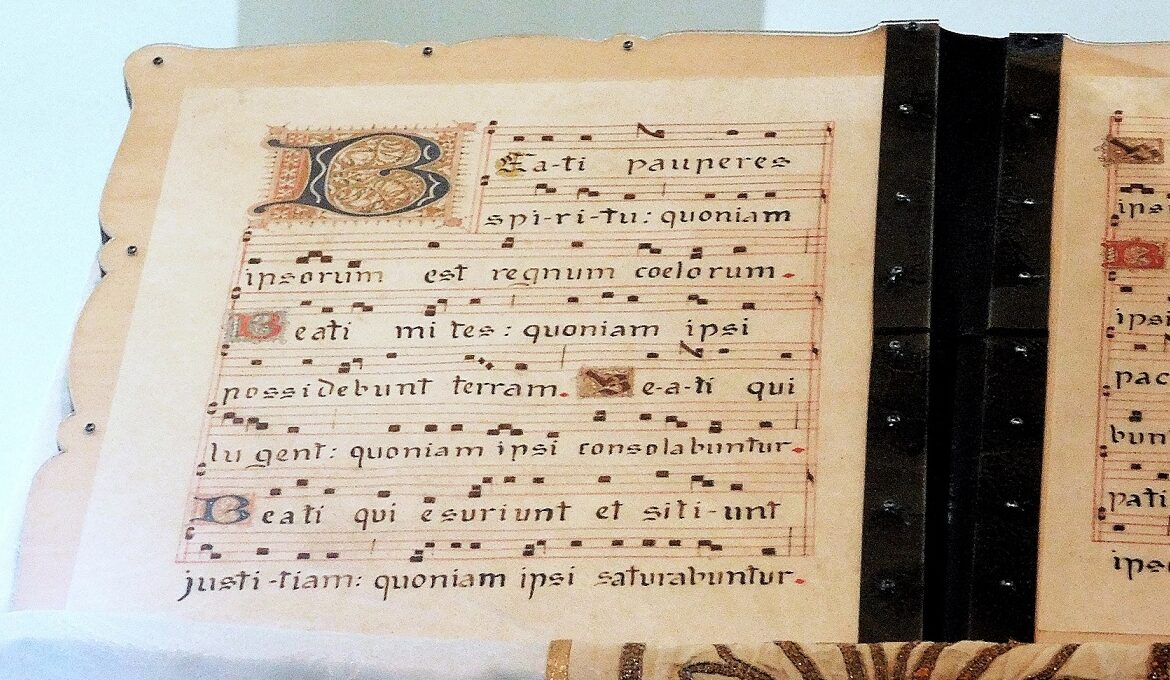 BEa-ti pauperes
spi-ri-tu: quoniam
ipsorum est regnum coelorum.
Beati mi tes: quoniam ipsi
possidebunt terram. Be-a-ti qui
lu gent: quoniam ipsi consolabuntur.
Beati qui esuriunt et siti-unt
justi-tiam: quoniam ipsi saturabuntur.
ipsi
pati